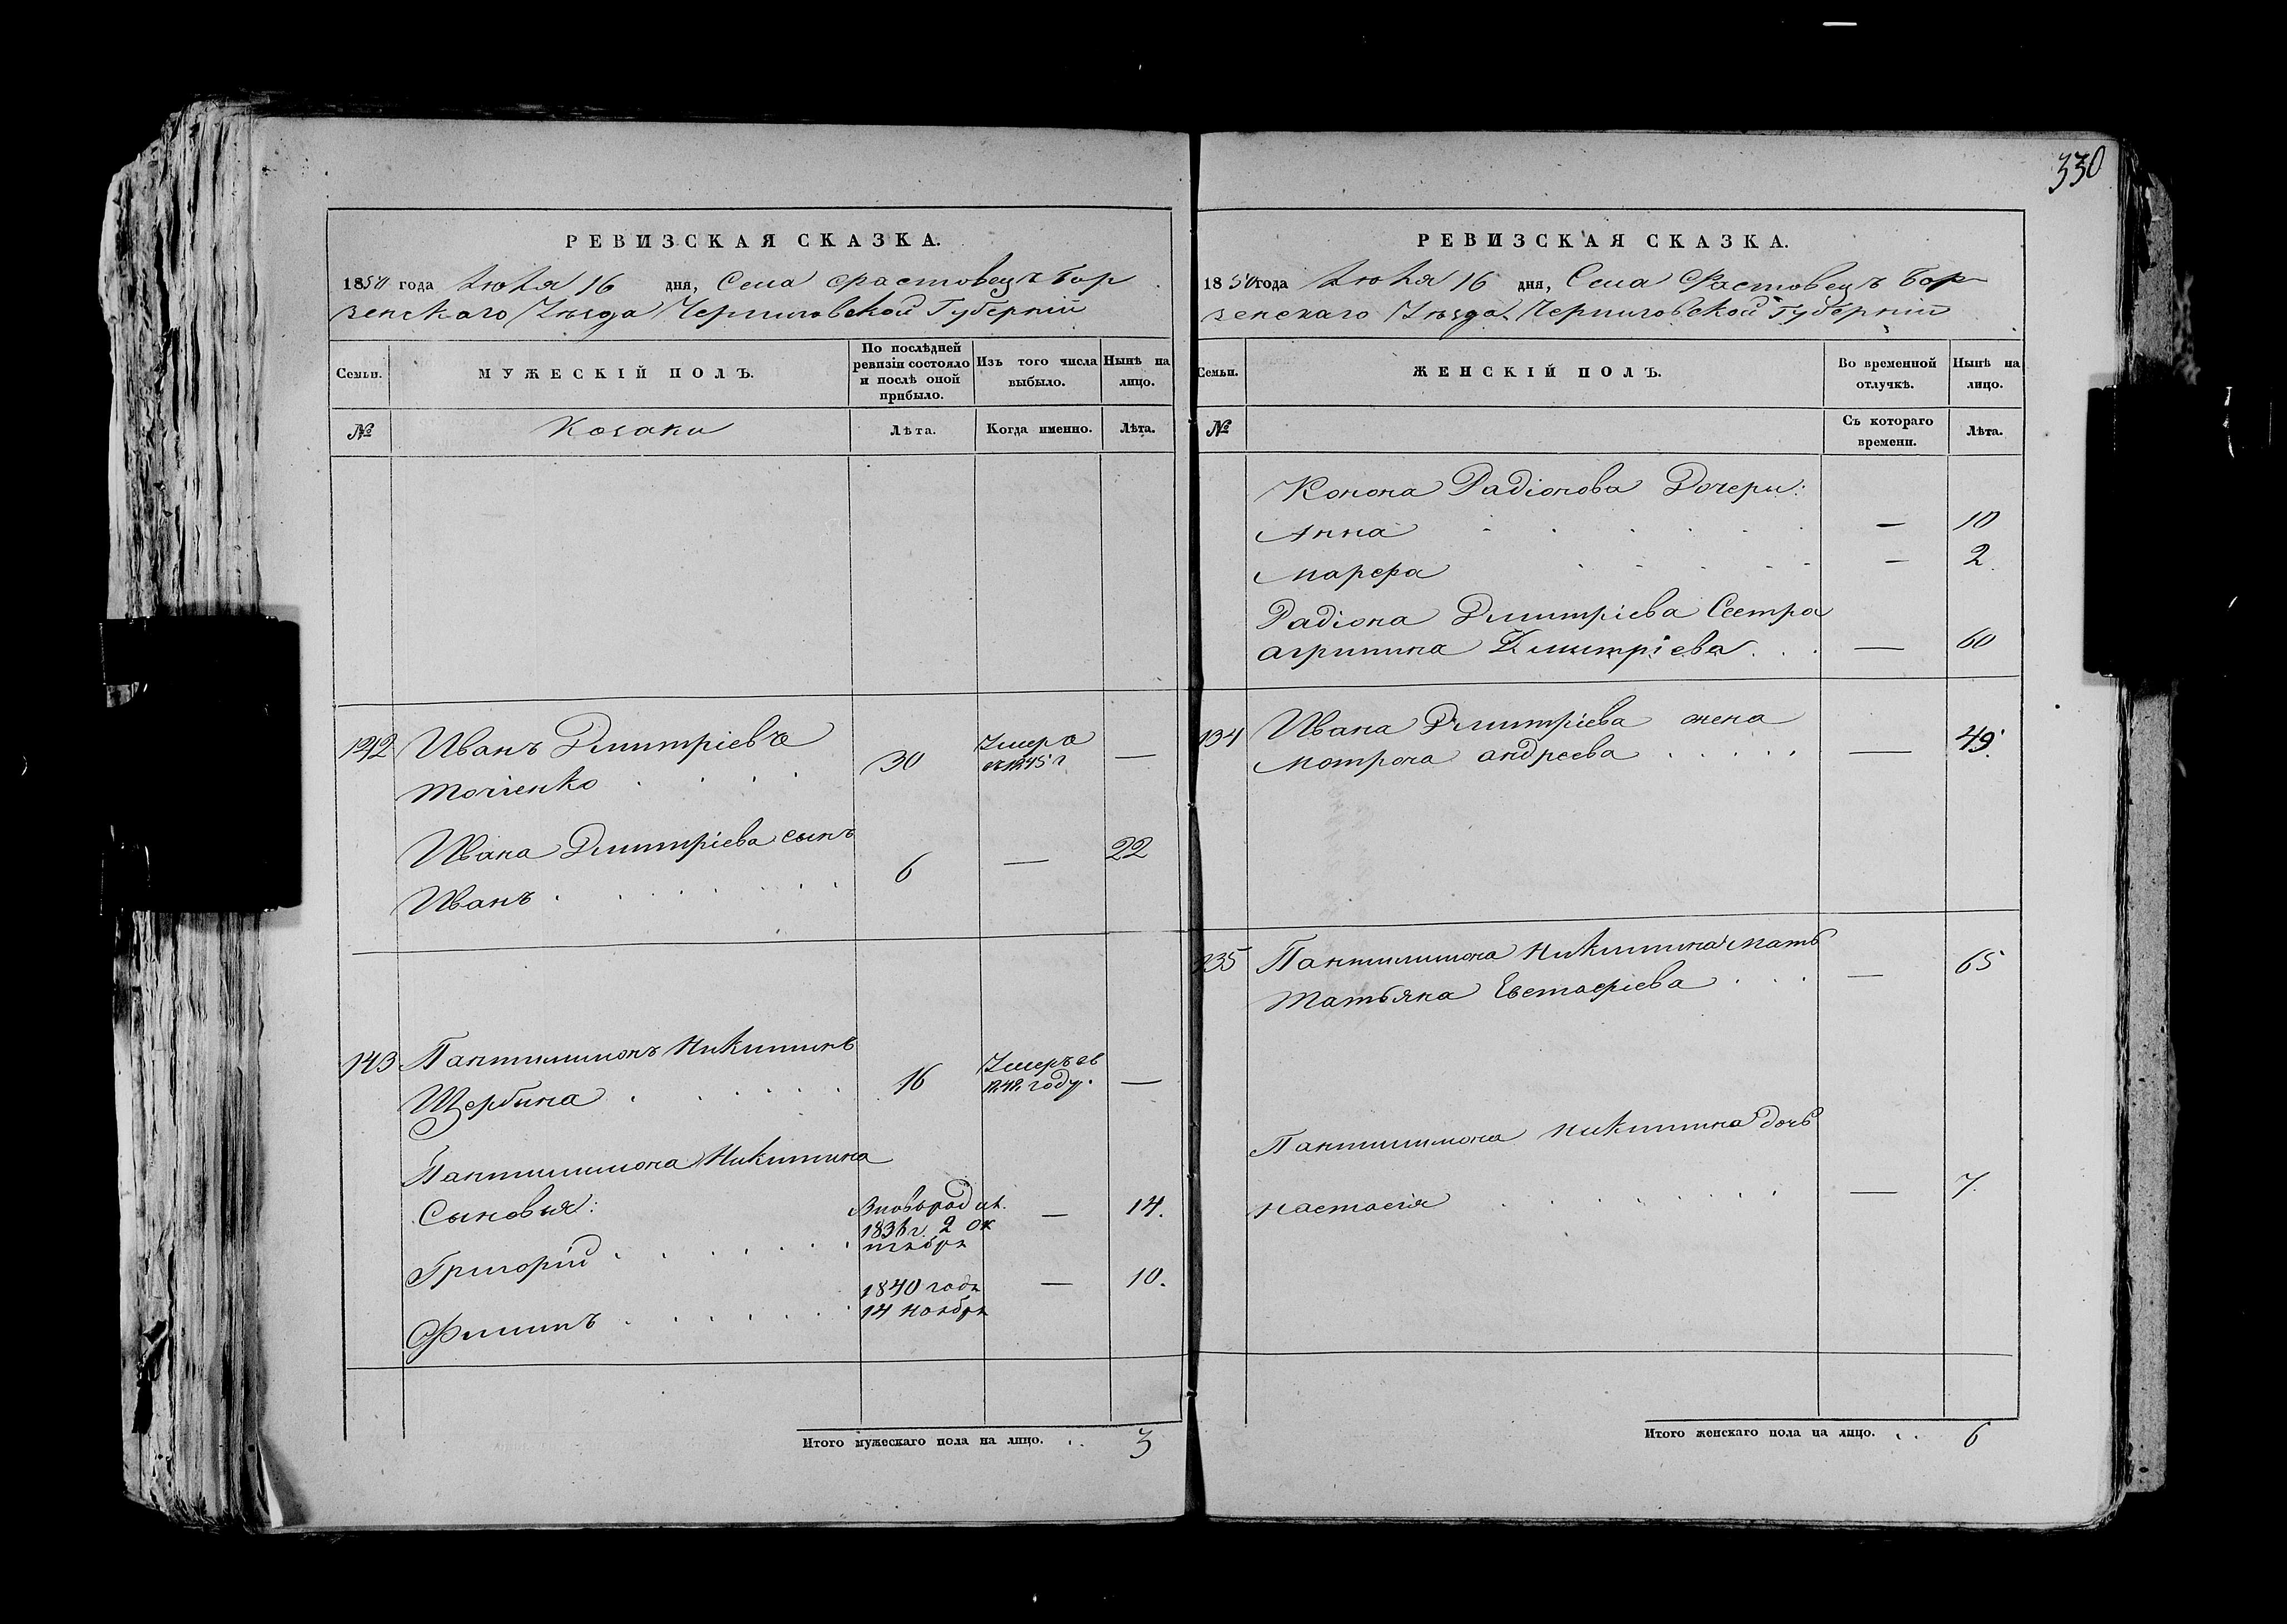 330
РЕВИЗСКАЯ СКАЗКА.
1850 года Июля 16 дня, Села Фастовецъ Бор
зенскаго Уѣзда Черниговской Губерніи
Семьи.
МУЖЕСКІЙ ПОЛЪ.
По послѣдней ревизіи состояло и послѣ оной прибыло.
Изъ того числа выбыло.
Нынѣ на лицо.
№
Козаки
Лѣта.
Когда именно.
Лѣта.
142 Иванъ Дмитріевъ
30 Умеръ въ 1845 г —
Ивана Дмитріева сынъ
Иванъ 6 — 22
143 Пантилимонъ Никитинъ
Щербина 16 Умеръ въ 1842 году. —
Пантилимона Никитина
Сыновья:
Григорій Вновьрод 1836 г. 2 октября — 14.
Филипъ 1840 года 14 ноября — 10.
Итого мужескаго пола на лицо. . . 3
РЕВИЗСКАЯ СКАЗКА.
1850 года Июля 16 дня, Села Фастовецъ Бор
зенскаго Уѣзда Черниговской Губерніи
Семьи.
ЖЕНСКІЙ ПОЛЪ.
Во временной отлучкѣ.
Нынѣ на лицо.
№
Съ котораго времени.
Лѣта.
Конона Радіонова Дочери:
Анна — 10
Марфа — 2.
Радіона Дмитріева Сестра
Агрипина Дмитріева — 60
134 Ивана Дмитріева жена
Мотрона Андреева — 49.
135 Пантилимона Никитина мать
Татьяна Евстафіева — 65
Пантилимона Никитина дочь
Настасія — 7.
Итого женскаго пола на лицо. . . 6